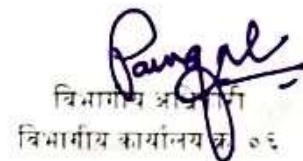 विभागीय अधिकारी
विभागीय कार्यालय क्र. ०६